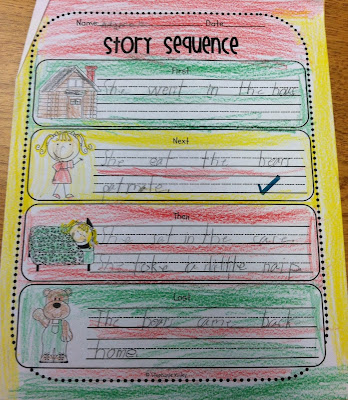 Name Date
Story Sequence
First
She went in the hous
Next
She eat the bears
oatmele.
Then
She got in the
She toke a little nap
Last
The bears came back
home.